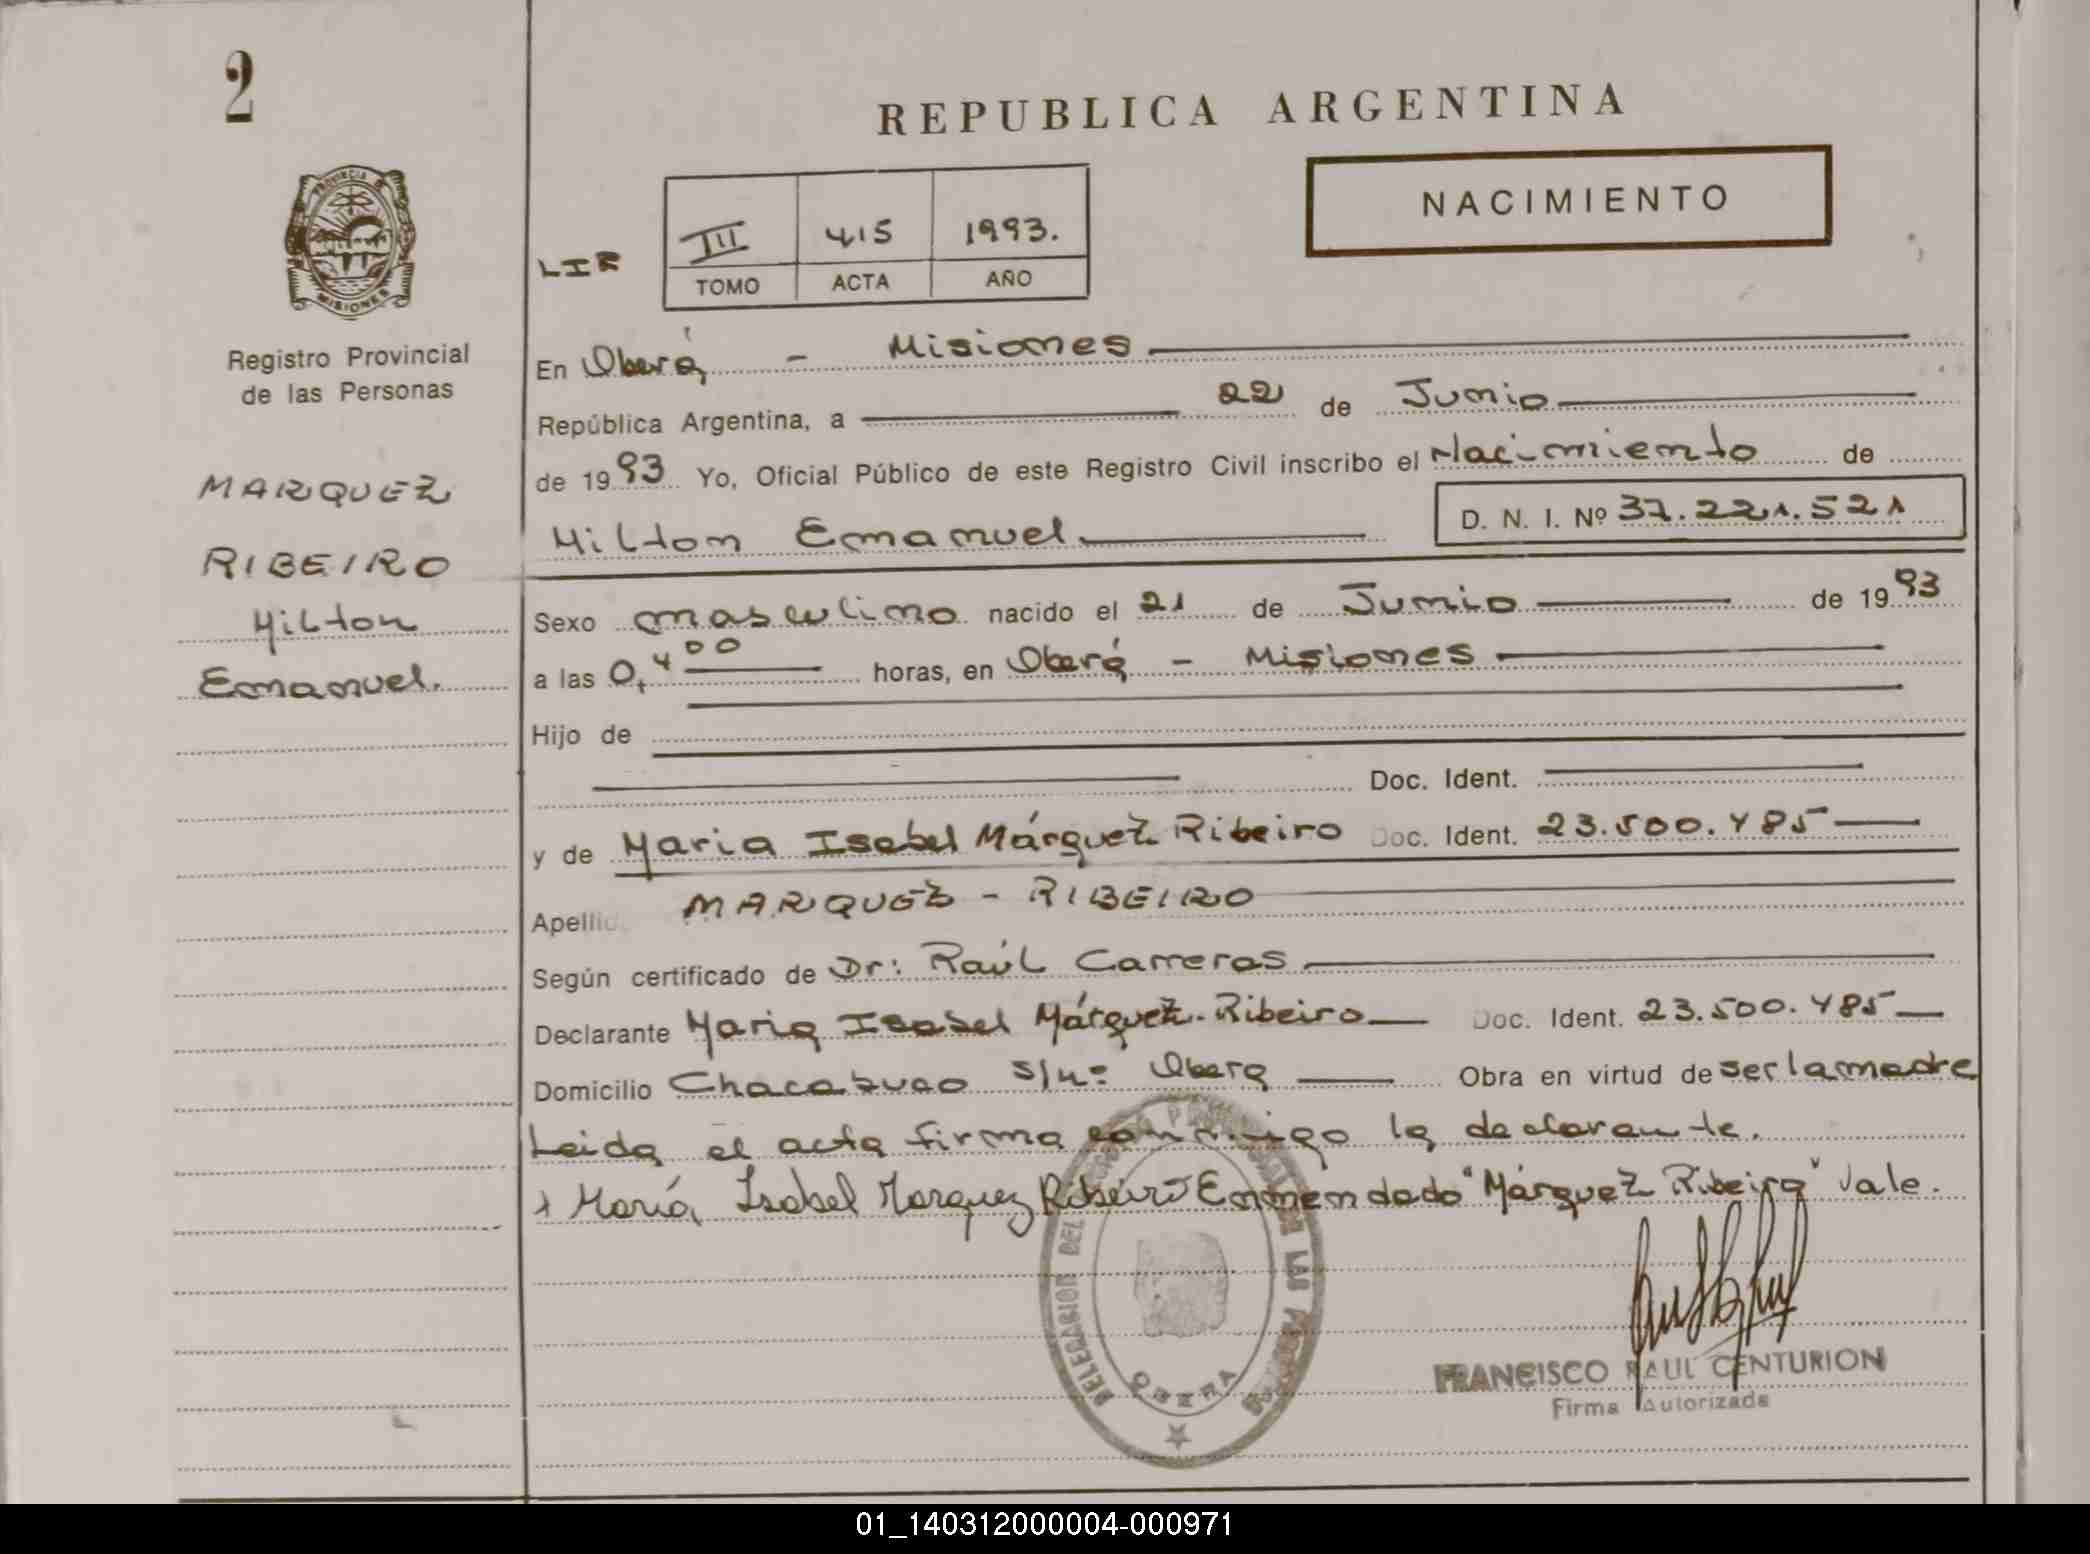 2
REPUBLICA ARGENTINA
NACIMIENTO
PROVINCIA DE
MISIONES
LIR
III 415 1993.
TOMO ACTA AÑO
Registro Provincial
de las Personas
MARQUEZ
RIBEIRO
Milton
Emanuel.
En Oberá, - Misiones
República Argentina, a 22 de Junio
de 1993 Yo, Oficial Público de este Registro Civil inscribo el Nacimiento de
Milton Emanuel. D. N. I. Nº 37.221.521
Sexo masculino nacido el 21 de Junio de 1993
a las 0,400 horas, en Oberá - Misiones
Hijo de
Doc. Ident.
y de Maria Isabel Márquez Ribeiro Doc. Ident. 23.500.485
Apellido MARQUEZ - RIBEIRO
Según certificado de Dr: Raúl Carreras
Declarante Maria Isabel Márquez-Ribeiro Doc. Ident. 23.500.485
Domicilio Chacabuco s/nº Obera Obra en virtud de ser la madre
Leida el acta firma conmigo la declarante.
x María Isabel Marquez Ribeiro Enmendado "Márquez Ribeiro" Vale.
DELEGACION DEL PROVINCIAL DE LAS PERSONAS
OBERA
FRANCISCO RAUL CENTURION
Firma Autorizada
01_140312000004-000971